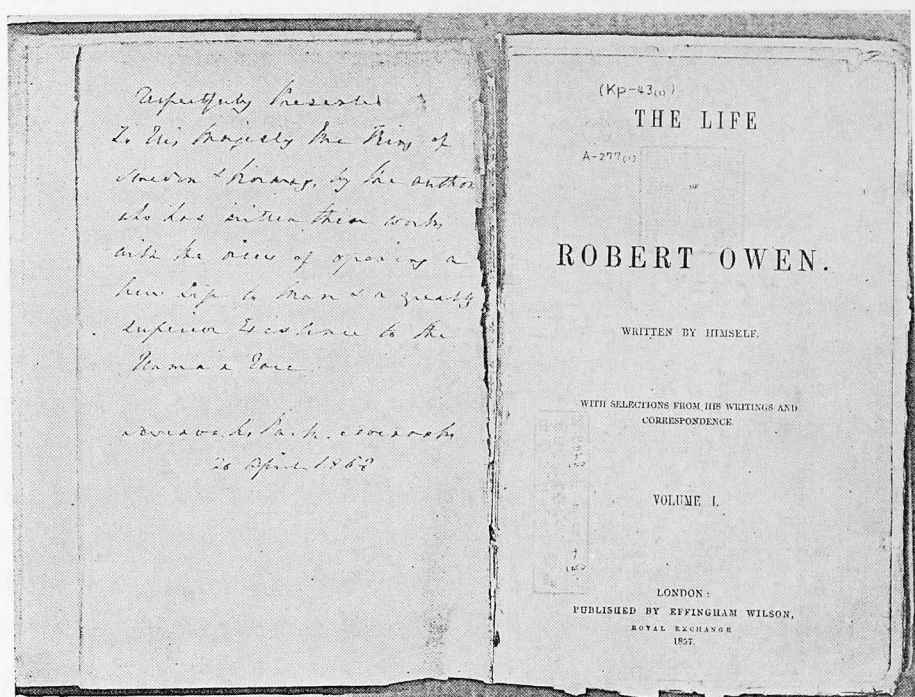 Respectfully Presented
To His Majesty the King of
Sweden & Norway, by the author
who has written these works
with the view of opening a
new life to man & a greatly
superior Existence to the
Human Race
Park, Sevenoaks
26 April 1858
(Kp-43(1))
THE LIFE
A-277(1)
OF
ROBERT OWEN.
WRITTEN BY HIMSELF.
WITH SELECTIONS FROM HIS WRITINGS AND
CORRESPONDENCE.
VOLUME I.
LONDON:
PUBLISHED BY EFFINGHAM WILSON,
ROYAL EXCHANGE
1857.